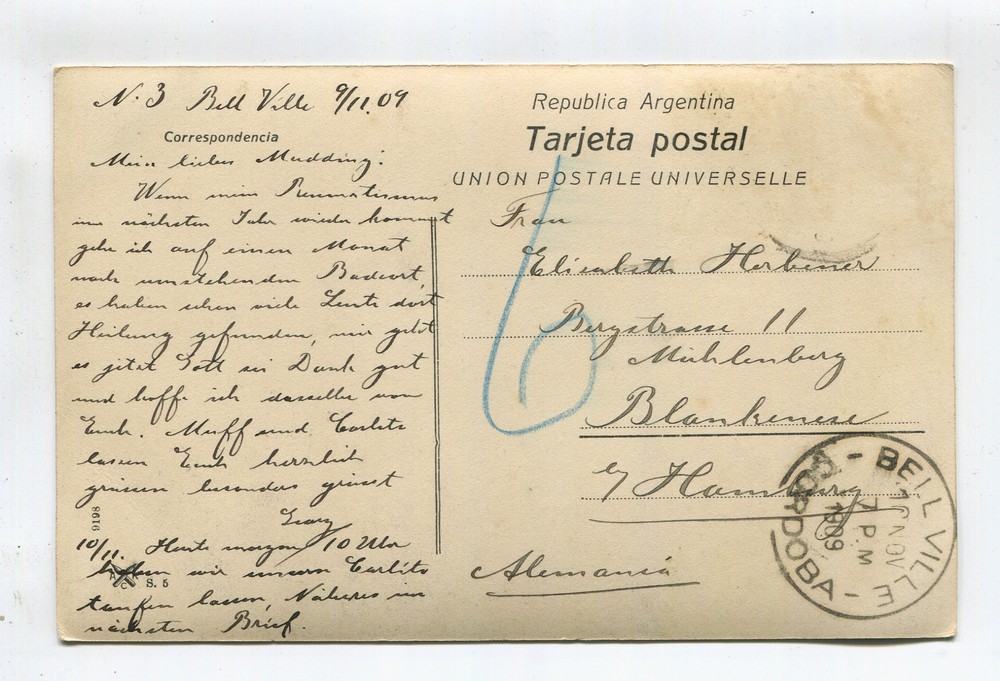 N. 3 Bell Ville 9/11.09
Correspondencia
Mein liebes Mudding!
Wenn mein Reumatismus
im nächsten Jahr wieder kommt
gehe ich auf einen Monat
nach umstehenden Badeort,
es haben schon viele Leute dort
Heilung gefunden, mir geht
es jetzt Gott sei Dank gut
und hoffe ich dasselbe von
Euch. Muff und Carlito
lassen Euch herzlich
grüssen besonders grüsst
Georg
10/11. Heute morgen 10 Uhr
haben wir unsern Carlito
taufen lassen, Näheres im
nächsten Brief.
9198
S. 5
Republica Argentina
Tarjeta postal
UNION POSTALE UNIVERSELLE
Frau
Elisabeth Horbener
Bergstrasse 11
Mühlenberg
Blankenese
b/ Hamburg
Alemania
BELL VILLE
CORDOBA
10 NOV
7 P.M
1909